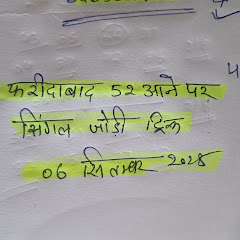 फरीदाबाद 52 आने पर
सिंगल जोड़ी ट्रिक
06 सितम्बर 2025